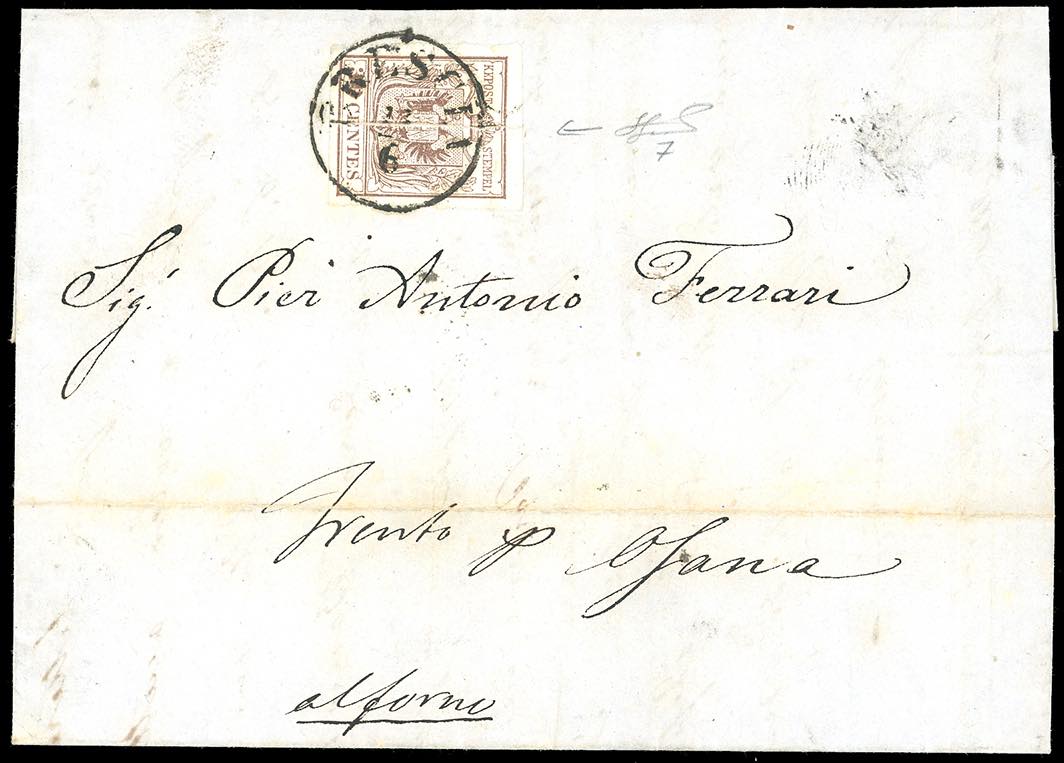 BRESCIA
6
CENTES.
STEMPEL
7
Sig.r Pier Antonio Ferrari
Trento p Osana
al forno